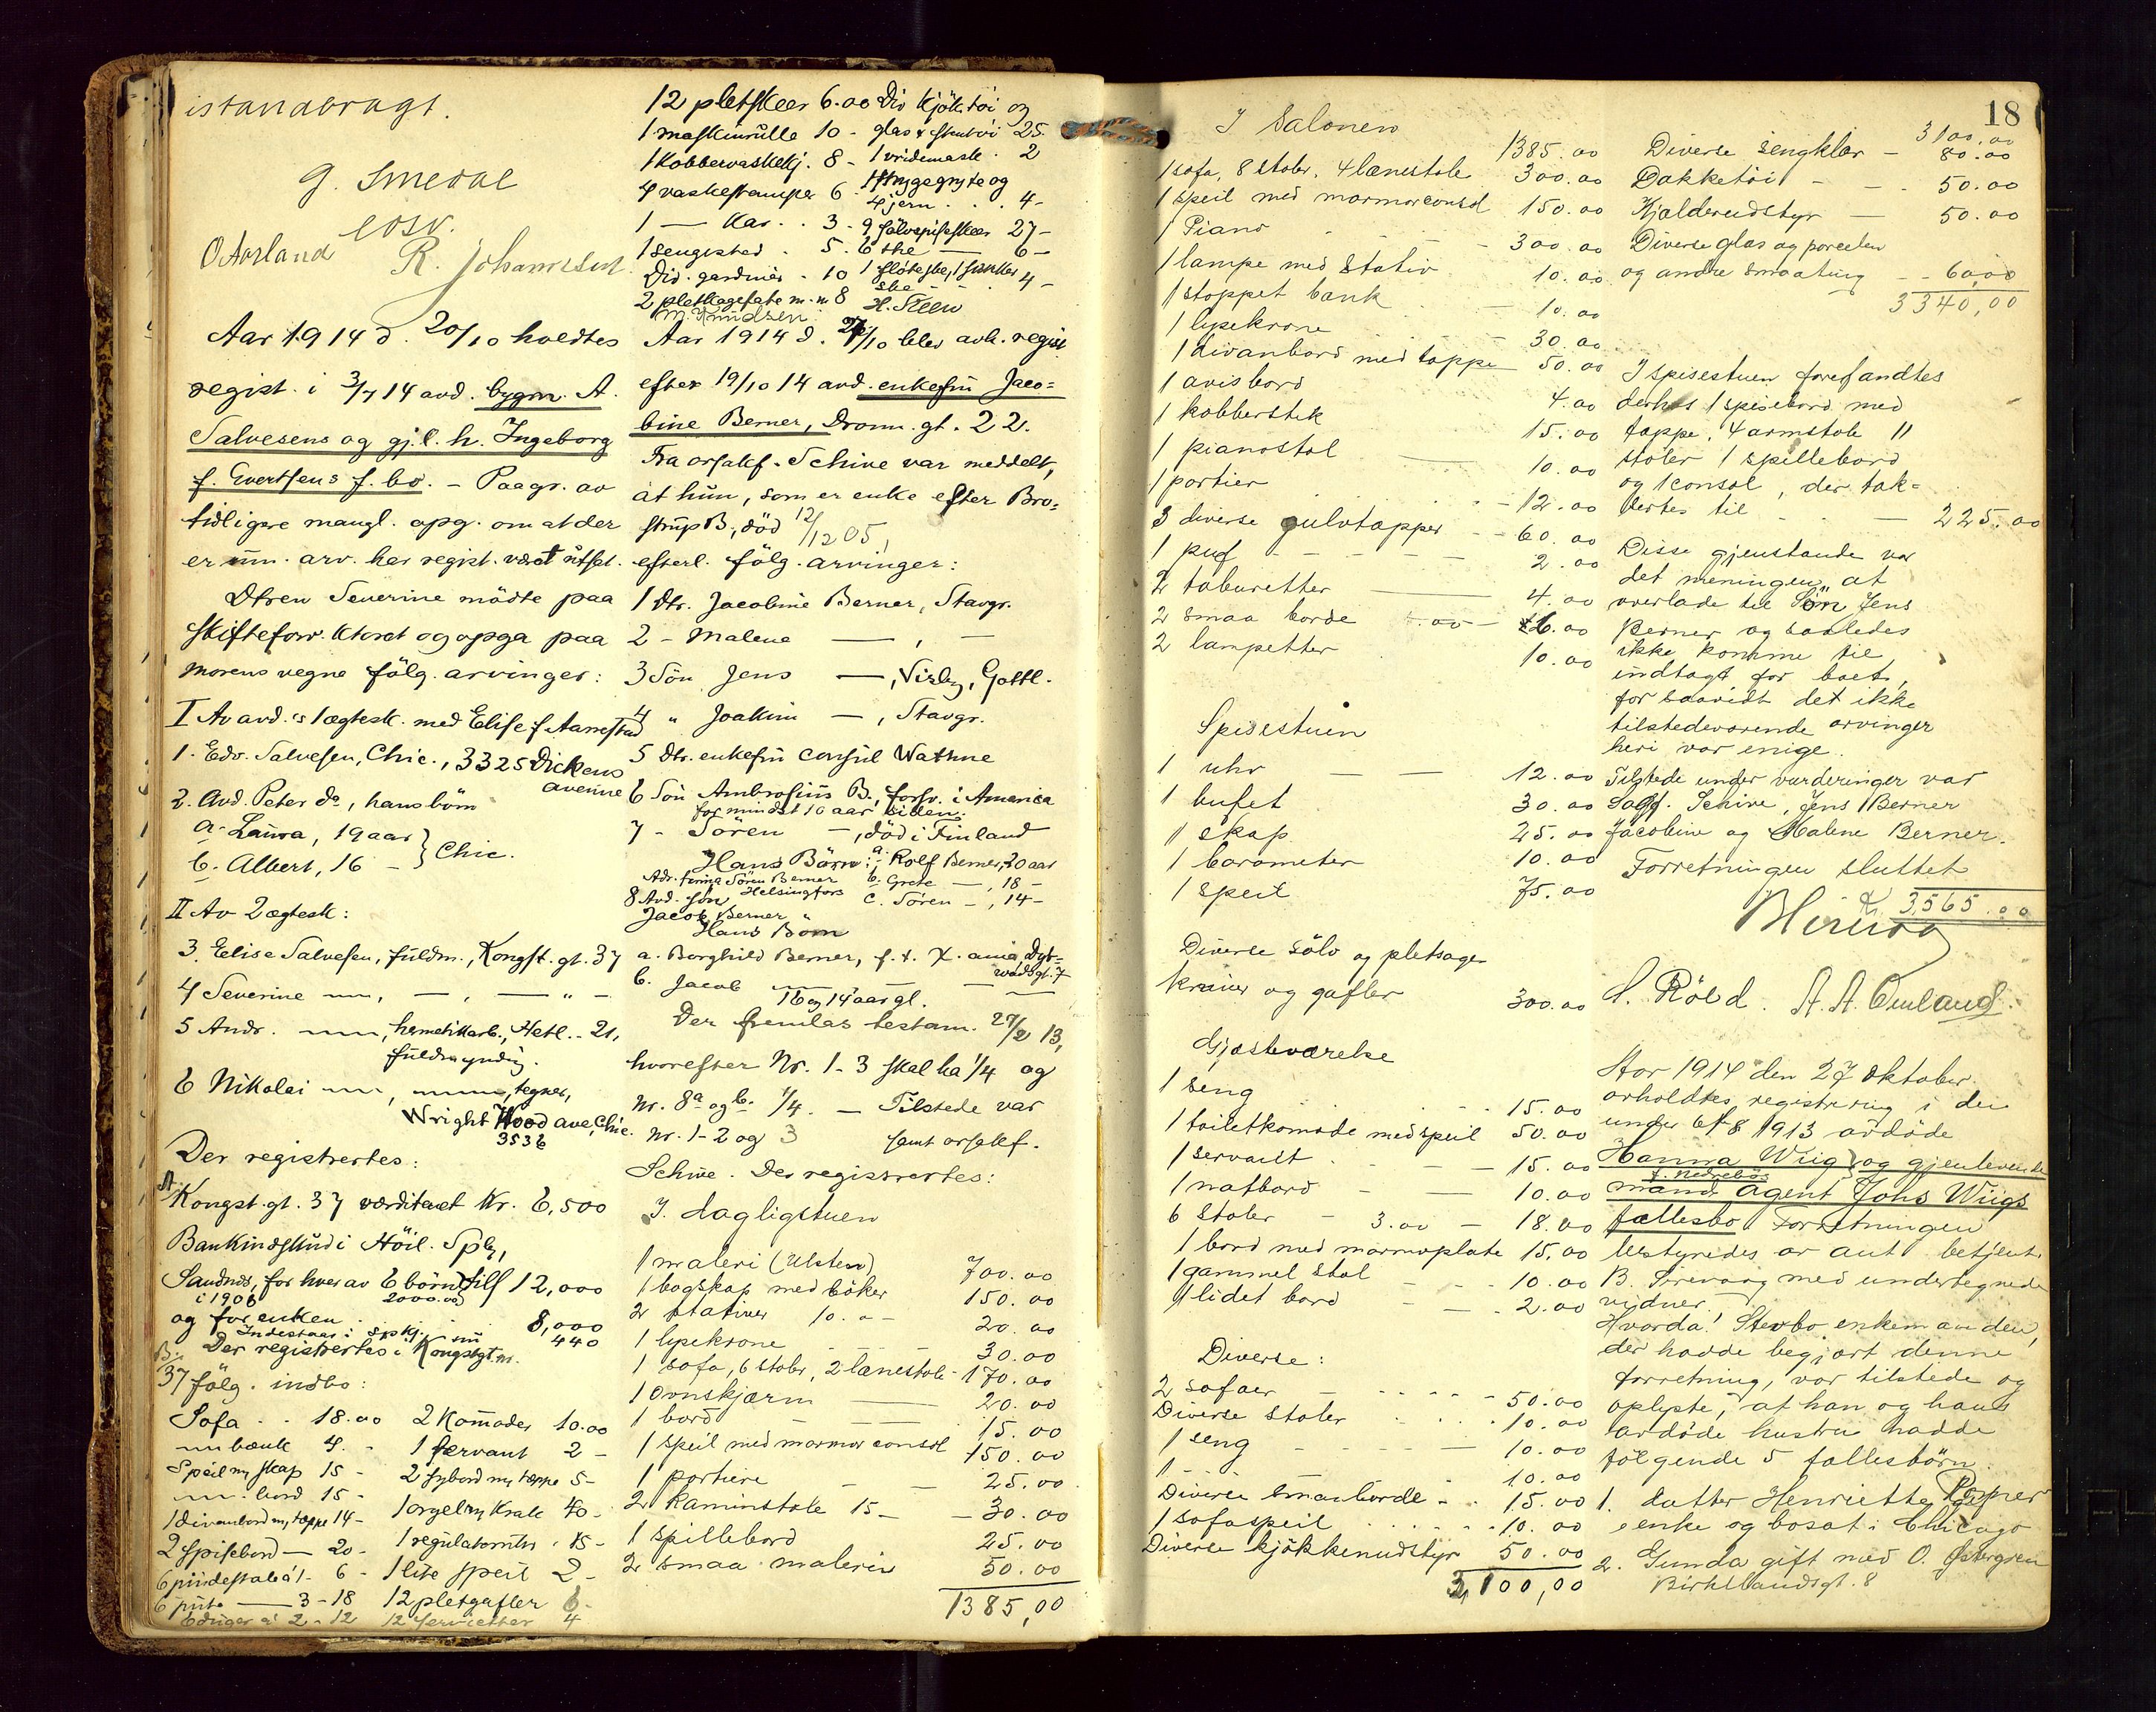 istandbragt.
G. Smedal
eosv.
O Aarland R. Johannesen.
Aar 1914 d. 20/10 holdtes
regist. i 3/7 14 avd. bygm. A.
Salvesens og gj.l. h. Ingeborg
f. Evertsens f. bo. - Paagr. av
tidligere mangl. opg. om at der
er um. arv. har regist. vært utsat.
Dtren Severine mödte paa
Skifteforv. ktoret og opga paa
morens vegne fölg. arvinger:
I Av avd.'s 1 ægtesk. med Elise f. Aarrestad
1. Edv. Salvesen, Chic., 3325 Dickens
avenue
2. Avd. Peter do, hans börn
a. Laura, 19 aar
b. Albert, 16 -
Chic.
II Av 2 ægtesk:
3. Elise Salvesen, fuldm., Kongst. gt. 37
4 Severine — , — , — " -
5 Andr. — , hermetikarb., Hetl. - 21,
fuldmyndig.
6 Nikolai — , —, tegner,
Wright Wood ave, Chic.
3536
Der registrertes:
A. Kongst. gt. 37 værditaxt Kr. 6,500
Bankindskud i Höil. Spb,
Sandnes, for hver av 6 börn tils 12,000
i 1906 2000.00
og for enken 8,000
Indestaar i Spkj. 440
B. Der registrertes i Kongsgt. nr.
37 fölg. indbo:
Sofa . . 18.00 2 Kommoder 10.00
— bænk 4. - 1 servant 2 -
Speil m/ skap 15 - 2 sybord m/ tæppe 5 -
— bord 15 -
1 divanbord m/ tæppe 14 - 1 orgel m/ krak 40 -
2 spisebord — 20 - 1 regulatoruhr . 15 -
6 pindestole á 1 - 6 - 1 lite speil 2 -
6 — 3 - 18 12 pletgafler 6 -
6 duger a 2 - 12 12 servietter 4
12 pletskeer 6.00 Div kjökktöi og
1 maskinrulle 10 - glas & stentöi 25.
1 Kobbervaskekj. 8 - 1 vridemask. 2
4 vaskestamper 6 1 strygegryte og
4 jern . . . 4 -
1 — Kar . . 3 - 9 sölvspiseskeer 27 -
1 sengested . 5. 6 the — 6 -
Div. gardiner - 10 1 flöteske, 1 sukker
ske - - . 4 -
2 pletkagefate m. m 8 H. Steen
M. Knudsen
Aar 1914 d. 27/10 blev avh. regist
efter 19/10 14 avd. enkefru Jaco=
bine Berner, Dronn. gt. 22.
Fra orsakf. Schive var meddelt,
at hun, som er enke efter Bro=
strup B., död 12/12 05,
efterl. fölg. arvinger:
1 Dtr. Jacobine Berner, Stavgr.
2 - Malene — , —
3 Sön Jens — , Visby, Gottl.
4 " Joakim — , Stavgr.
5 Dtr. enkefru consul Wathne
6 Sön Ambrosius B., forsv. i America
for mindst 10 aar siden.
7 - Sören — , död i Finland
Hans Börn: a. Rolf Berner, 20 aar
Adr. firma Sören Berner b. Grete — , 18 -
Helsingfors c. Sören - , 14 -
8 Avd. sön
Jacob Berner "
Hans Born
a. Borghild Berner, f. t. X.ania, Dyb=
wadsgt. 7
b. Jacob — —
16 og 14 aar gl.
Der fremlas testam. 27/2 13,
hvorefter Nr. 1-3 skal ha 1/4 og
Nr. 8a og b. 1/4. — Tilstede var
Nr. 1-2 og 3 samt orsakf.
Schive. Der registrertes:
I. Dagligstuen
1 maleri (Ulsten) 700.00
1 bogskap med böker 150.00
2 stativer 10.00 20.00
1 lysekrone 30.00
1 sofa, 6 stoler, 2 lænestole - 170.00
1 Ovnskjærm 20.00
1 bord 15.00
1 speil med marmor consol 150.00
1 portiere 25.00
2 Kaminstole 15 - 30.00
1 spillebord 25.00
2 smaa malerier 50.00
1385,00
18
I Salonen
1385.00
1 sofa, 8 stoler, 4 lænestole 300.00
1 speil med marmorconsol 150.00
1 Piano 300.00
1 lampe med stativ 10.00
1 stoppet bank 10.00
1 lysekrone 30.00
1 divanbord med tæppe 50.00
1 avisbord 4.00
1 kobberstik 15.00
1 pianostol 10.00
1 portier 12.00
3 diverse gulvtæpper 60.00
1 puf 2.00
2 taburetter 4.00
2 smaa borde 6.00
2 lampetter 10.00
Spisestuen
1 uhr 12.00
1 bufet 30.00
1 skap 25.00
1 barometer 10.00
1 speil 75.00
Diverse sölv og pletsager
kniver og gafler 300.00
Gjæsteværelse
1 seng 15.00
1 toiletkomode med speil 50.00
1 servant 15.00
1 natbord 10.00
6 Stoler - 3.00 - 18.00
1 bord med marmorplate 15.00
1 gammel stol 10.00
1 lidet bord 2.00
Diverse:
2 sofaer 50.00
Diverse stoler 10.00
1 seng 10.00
1 - 10.00
Diverse smaaborde 15.00
1 sofaspeil 10.00
Diverse kjökkenudstyr 50.00
3,100,00
3100.00
Diverse sengklær - 80.00
Dækketöi - - 50.00
Kjælderudstyr — 50.00
Diverse glas og porcelen
og andre smaating - - 60,00
3340,00
I spisestuen forefandtes
derhos 1 spisebord med
tæppe, 4 armstole 11
stoler 1 spillebord
og 1 consol, der tak=
sertes til — 225.00
Disse gjenstande var
det meningen at
overlade til Sön Jens
Berner og saaledes
ikke komme til
indtægt for boet,
for saavidt det ikke
tilstedeværende arvinger
heri var enige.
Tilstede under vurderingen var
Sagf. Schive, Jens Berner
Jacobine og Malene Berner.
Forretningen sluttet
Kr 3,565.00
S. Röed. A. A. Omland.
Aar 1914 den 27 oktober
avholdtes registrering i den
under 6/8 1913 avdöde
Hanna Wiig og gjenlevende
f. Nedrebö
mand agent Johs Wiigs
fællesbo Forretningen
bestyredes av aut betjent
B. Sirevaag med undertegnede
vidner.
Hvorda! Stervbo enkemanden,
der havde begjært denne
forretning, var tilstede og
oplyste, at han og hans
avdöde hustru havde
fölgende 5 fællesbörn
1. datter Henriette
enke og bosat i Chicago
2. Gunda gift med O. Östergren
Birkelandsgt. 8